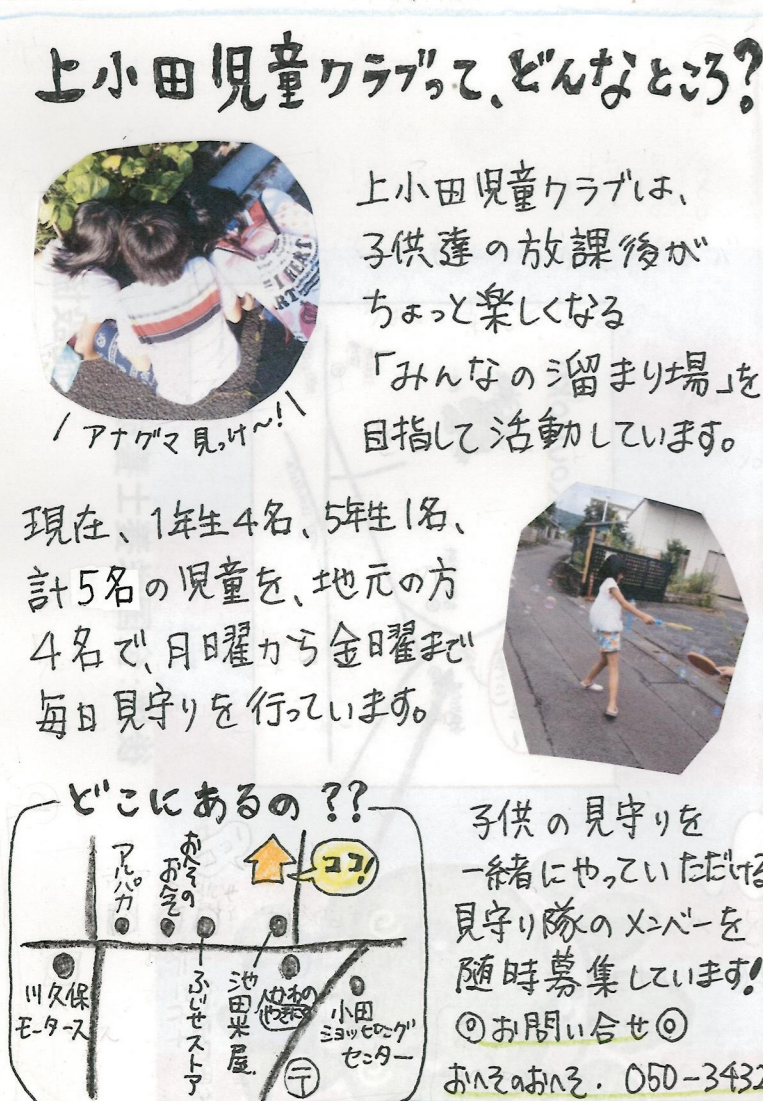 上小田児童クラブって、どんなところ?
上小田児童クラブは、
子供達の放課後が
ちょっと楽しくなる
「みんなの溜まり場」を
目指して活動しています。
アナグマ見っけ〜!
現在、1年生4名、5年生1名、
計5名の児童を、地元の方
4名で、月曜から金曜まで
毎日見守りを行っています。
どこにあるの??
アルパカ
おへその
おへそ
ココ!
川久保
モータース
ふじせストア
池田米屋
小田
ショッピング
センター
〒
子供の見守りを
一緒にやっていただける
見守り隊のメンバーを
随時募集しています!
◎お問い合せ◎
おへそのおへそ. 050-3432